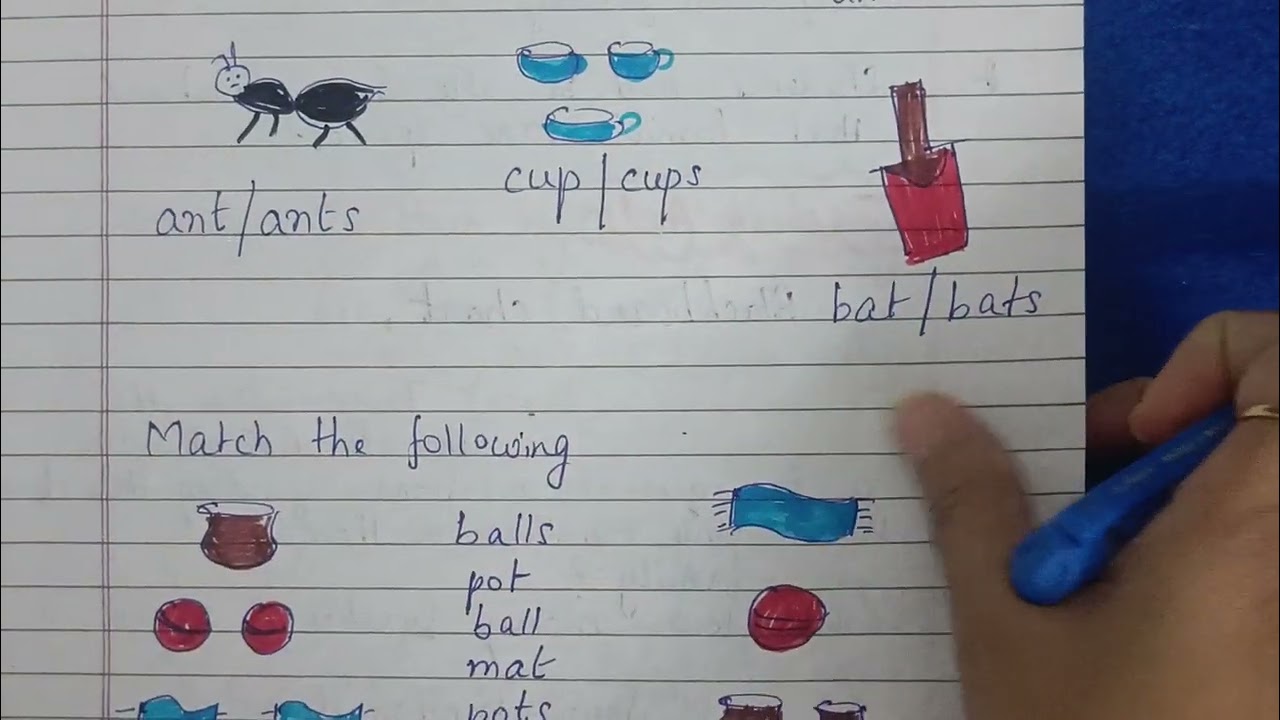 cup/cups
ant/ants
bat/bats
Match the following
balls
pot
ball
mat
pots